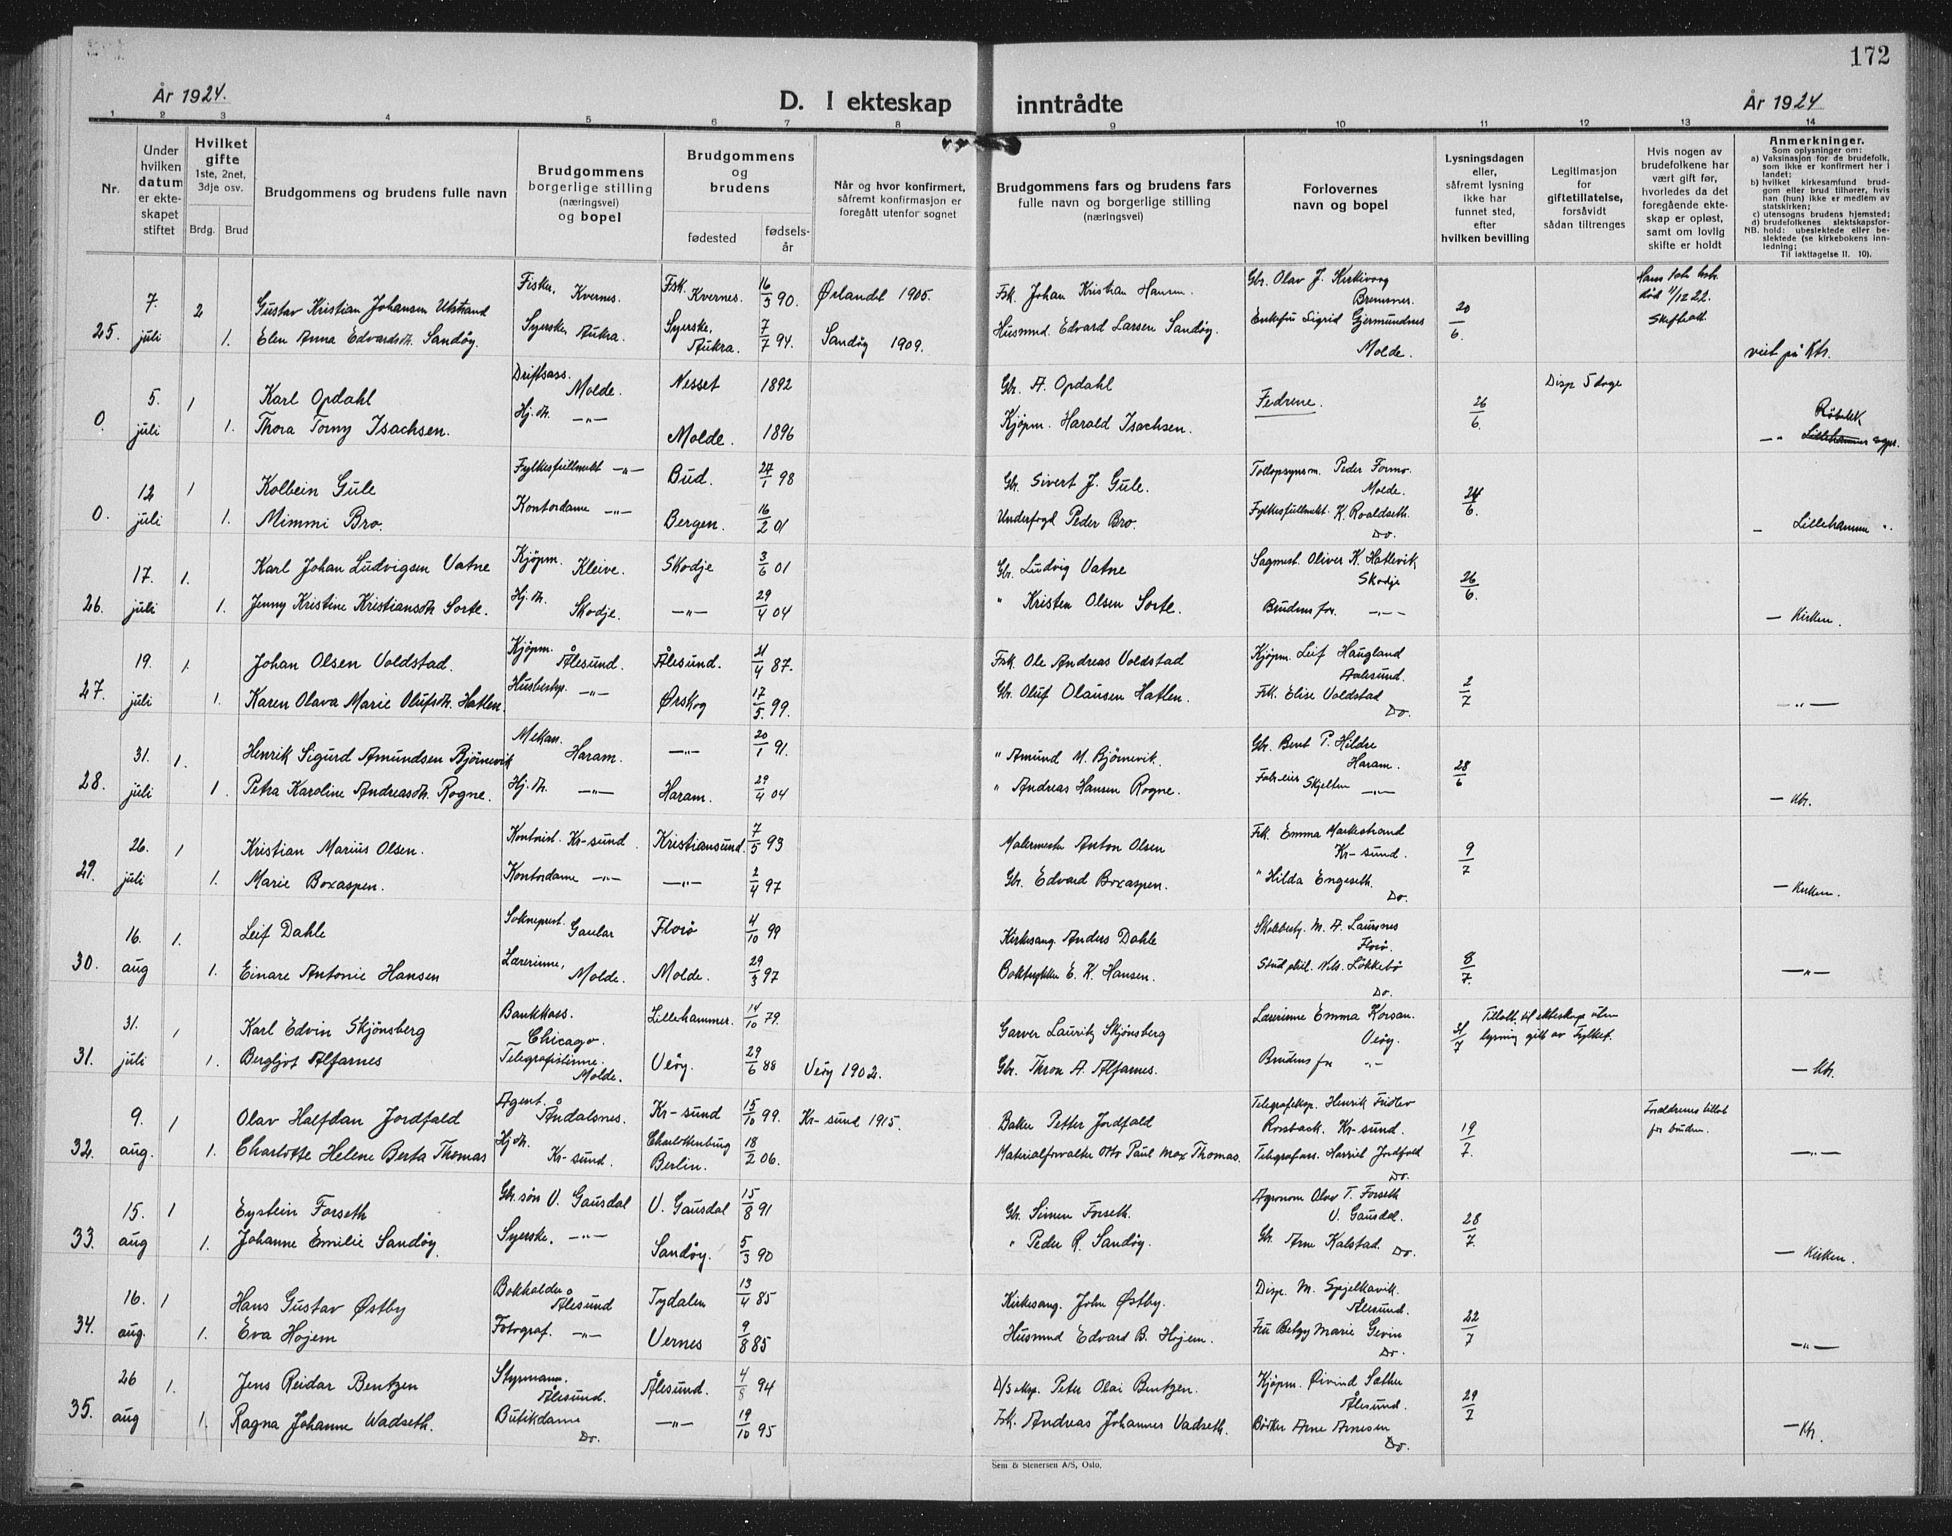 172
År 1924.
D. I ekteskap inntrådte
År 1924
1 2 3 4 5 6 7 8 9 10 11 12 13 14
Nr.
Under hvilken datum er ekteskapet stiftet
Hvilket gifte 1ste, 2net, 3dje osv.
Brdg. Brud
Brudgommens og brudens fulle navn
Brudgommens borgerlige stilling (næringsvei) og bopel
Brudgommens og brudens
fødested
fødselsår
Når og hvor konfirmert, såfremt konfirmasjon er foregått utenfor sognet
Brudgommens fars og brudens fars fulle navn og borgerlige stilling (næringsvei)
Forlovernes navn og bopel
Lysningsdagen eller, såfremt lysning ikke har funnet sted, efter hvilken bevilling
Legitimasjon for giftetillatelse, forsåvidt sådan tiltrenges
Hvis nogen av brudefolkene har vært gift før, hvorledes da det foregående ekteskap er opløst, samt om lovlig skifte er holdt
Anmerkninger.
Som oplysninger om:
a) Vaksinasjon for de brudefolk, som ikke er konfirmert her i landet;
b) hvilket kirkesamfund brudgom eller brud tilhører, hvis han (hun) ikke er medlem av statskirken;
c) utensogns brudens hjemsted;
d) brudefolkenes slektskapsforhold: ubeslektede eller beslektede (se kirkebokens innledning;
NB.
Til iakttagelse II. 10).
25. 7. juli 2 Gustav Kristian Johansen Utstrand Fisker, Kvernes. Fsk. Kvernes. 16/3 90 Ørlandet 1905. Fsk. Johan Kristian Hansen. Gbr. Olav J. Kirkivoog Bremsnes. 20/6. Hans 1ste hstr. død 11/12 22. Skifte holdt
1. Elen Anna Edvardsdtr. Sandøy. Syerske, Aukra. Syerske, Aukra. 7/7 94. Sandøy 1909. Husmnd. Edvard Larsen Sandøy. Enkefru Sigrid Gjermundnes Molde. viet på Ktr.
0. 5. juli 1 Karl Opdahl Driftsass. Molde. Nesset 1892 Gbr. A. Opdahl Fedrene. 26/6. Disp 5 dage
1. Thora Torny Isachsen. Hj.dt. —"— Molde. 1896 Kjøpm. Harald Isachsen. Røbekk —" Lillehammer
0. 12 juli 1 Kolbein Gule Fylkesfullmekt —"— Bud. 27/1 98 Gbr. Sivert J. Gule. Tollopsynsm. Peder Formo Molde. 24/6.
1. Mimmi Bro. Kontordame —"— Bergen. 16/2 01 Underfogd Peder Bro. Fylkesfullmekt. K. Roaldseth. Do. — Lillehammer "
26. 17. juli 1. Karl Johan Ludvigsen Vatne Kjøpm. Kleive. Skodje 3/6 01 Gbr. Ludvig Vatne Sagmest. Oliver K. Hatlevik Skodje 26/6.
1. Jenny Kristine Kristiansdtr. Sorte. Hj. dt. Skodje. —"— 29/4 04 " Kristen Olsen Sorte. Brudens far. —"— — Kirken.
27. 19. juli 1. Johan Olsen Voldstad. Kjøpm. Ålesund. Ålesund. 21/4 87. Fsk. Ole Andreas Voldstad Kjøpm. Leif Haugland Aalesund. 2/7
1. Karen Olava Marie Olufsdtr. Hatlen. Husbestyr. —"— Ørskog 17/5. 99. Gbr. Oluf Olausen Hatlen. Frk. Elise Voldstad Do. —"—
28. 31. juli 1. Henrik Sigurd Amundsen Bjørnevik Mekan. Haram. —"— 20/1 91. " Amund M. Bjørnevik. Gbr. Bernt P. Hildre Haram. 28/6
1. Petra Karoline Andreasdtr. Rogne. Hj. dt. —"— Haram. 29/4 04 " Andreas Hansen Rogne. Skjelten —"— — Ktr.
29. 26. juli 1 Kristian Marius Olsen. Kontorist. Kr-sund. Kristiansund. 7/5 93 Malermester Anton Olsen Frk. Emma Markestrand Kr-sund. 9/7
1. Marie Boxaspen. Kontordame —"— —"— 2/4 97 Gbr. Edvard Boxaspen. " Hilda Engeseth. Do. — Kirken.
30. 16. aug 1. Leif Dahle Sokneprest. Gaular Florø 4/10 99 Kirkesang. Anders Dahle Skolebesty. M. A. Laursnes Florø. 8/7.
1. Einare Antonie Hansen Lærerinne, Molde. Molde. 29/3 97 Boktrykker E. K. Hansen. Stud. phil. Nils. Løkkebø Do. —"—
31. 31. juli 1 Karl Edvin Skjønsberg Bankkass. Chicago. Lillehammer. 14/10 79. Garver Lauritz Skjønsberg Lærerinne Emma Korsan. Veøy. 31/7 Tillatt. til ekteskap uten lysning gitt av Fylket.
1. Bergljot Alfarnes Telegrafistinne. Molde. Veøy. 29/6 88 Veøy 1902. Gbr. Thron A. Alfarnes. Brudens far —"— — Ktr.
32. 9. aug. 1 Olav Halfdan Jordfald Agent. Åndalsnes. Kr-sund 15/10 99. Kr-sund 1915. Baker Petter Jordfald Telegrafeksp. Henrik Fridlev Rorsback. Kr-sund. 19/7. Foreldrenes tillat for bruden.
1. Charlotte Helene Berta Thomas Hj dt. Kr-sund. Charlottenburg Berlin. 18/2 06. Materialforvalter Otto Paul Max Thomas. Telegrafass. Harriet Jordfald Do. —"—
33. 15. aug 1 Eystein Forseth Gbr. søn V. Gausdal V. Gausdal 15/8 91 Gbr. Simen Forseth. Agronom Olav T. Forseth V. Gausdal. 28/7.
1. Johanne Emilie Sandøy. Syerske. —"— Sandøy. 5/3 90 " Peder R. Sandøy. Gbr. Arne Kalstad. Do. — Kirken.
34. 16. aug. 1 Hans Gustav Østby Bokholder Ålesund Tydalen 13/4 85 Kirkesang. John Østby. Disp. M. Spjelkavik. Ålesund. 22/7
1. Eva Hojem Fotograf. —"— Vernes 9/8 85 Husmnd Edvard B. Hojem. Fru Betzy Marie Gevin Do. —"—
35. 26 aug 1. Jens Reidar Bentzen Styrmann. Ålesund. Ålesund. 4/8 94 D/S eksp. Peter Olai Bentzen. Kjøpm. Øivind Sæther Ålesund. 29/7
1. Ragna Johanne Wadseth. Butikdame Do. —"— 19/10 95 Fsk. Andreas Johannes Vadseth. Bødker Arne Arnesen Do. — Ktr.
Sem & Stenersen A/S, Oslo.